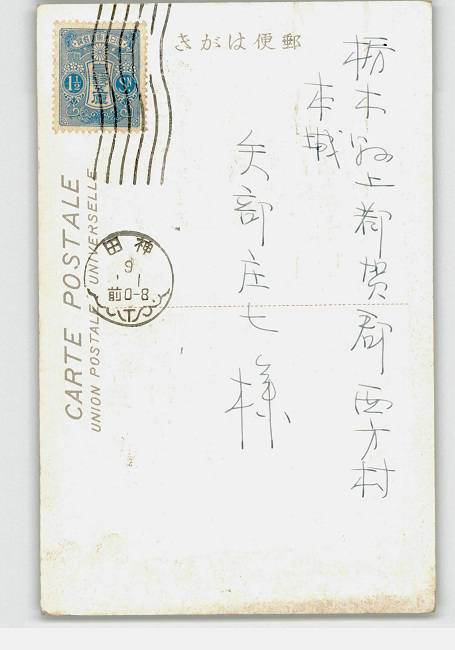 きがは便郵
栃木縣上都賀郡西方村
本城
矢部庄七様
CARTE POSTALE
UNION POSTALE UNIVERSELLE
田神
9
1
前0-8
1½
SN